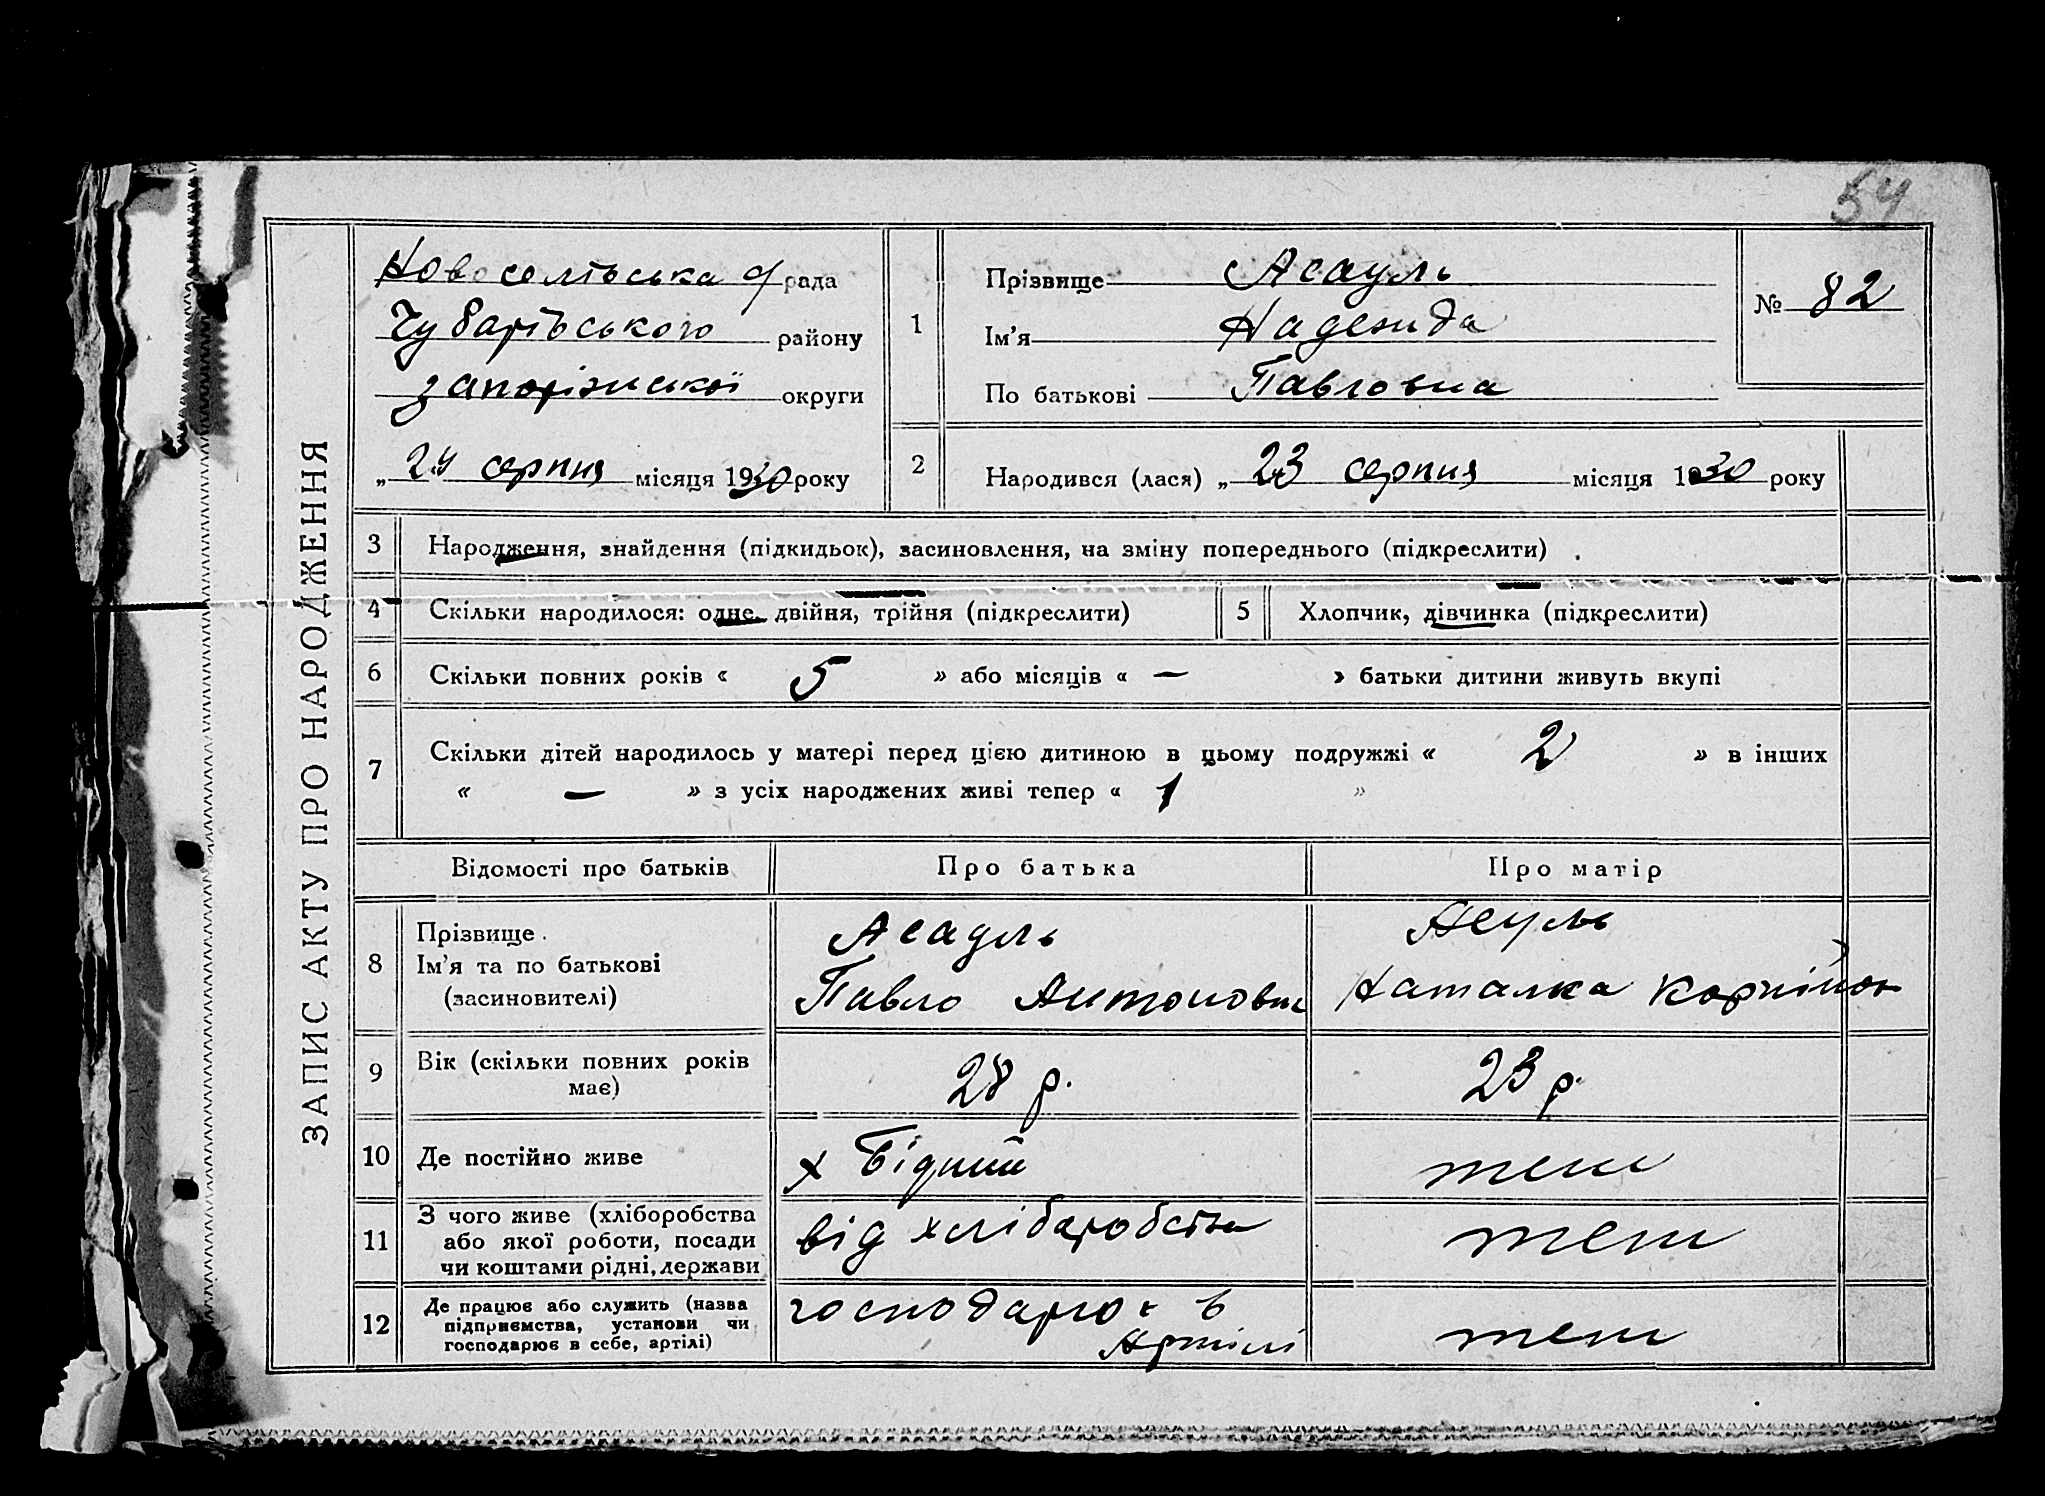 54
ЗАПИС АКТУ ПРО НАРОДЖЕННЯ
Новоселівська с/рада
Чубарівського району
запоріжської округи
„ 24 серпня місяця 1930 року
1
Прізвище Асауль
Ім'я Надежда
По батькові Павловна
№ 82
2 Народився (лася) „ 23 серпня місяця 1930 року
3 Народження, знайдення (підкидьок), засиновлення, на зміну попереднього (підкреслити)
4 Скільки народилося: одне, двійня, трійня (підкреслити)
5 Хлопчик, дівчинка (підкреслити)
6 Скільки повних років « 5 » або місяців « — » батьки дитини живуть вкупі
7 Скільки дітей народилось у матері перед цією дитиною в цьому подружжі « 2 » в інших
« — » з усіх народжених живі тепер « 1 »
Відомості про батьків Про батька Про матір
8 Прізвище
Ім'я та по батькові
(засиновителі)
Асауль
Павло Антонович
Асуль
Наталка
9 Вік (скільки повних років
має)
28 р.
23 р.
10 Де постійно живе
х Бідний
теж
11 З чого живе (хліборобства
або якої роботи, посади
чи коштами рідні, держави
від хліборобства
теж
12 Де працює або служить (назва
підприємства, установи чи
господарює в себе, артілі)
господарює в
Артілі
теж